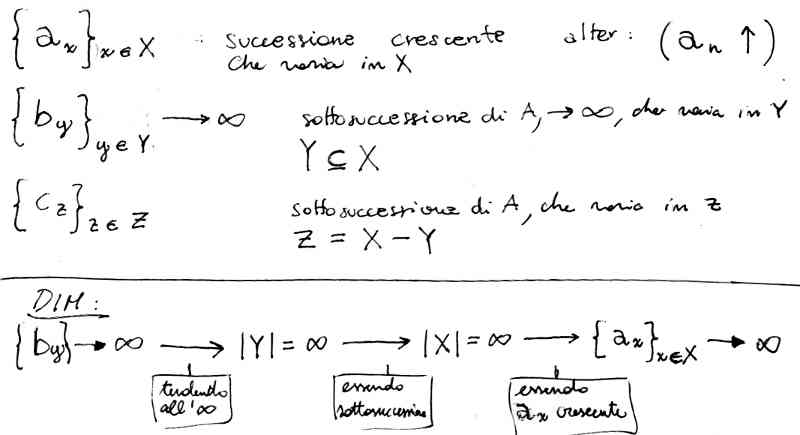 {a_x}_{x ∈ X} : successione crescente alter: (a_n ↑)
che varia in X
{b_y}_{y ∈ Y} → ∞ sottosuccessione di A, → ∞, che varia in Y
Y ⊆ X
{c_z}_{z ∈ Z} sottosuccessione di A, che varia in Z
Z = X - Y
DIM:
{b_y} → ∞ → |Y| = ∞ → |X| = ∞ → {a_x}_{x ∈ X} → ∞
tendendo all'∞
essendo sottosuccessione
essendo a_x crescente